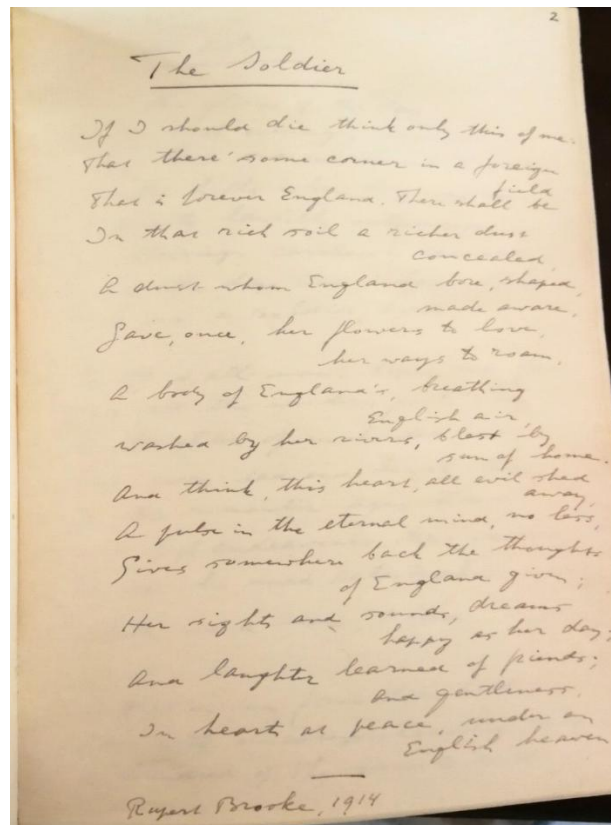 2
The Soldier
If I should die think only this of me.
That there's some corner in a foreign
field
That is forever England. There shall be
In that rich soil a richer dust
concealed,
A dust whom England bore, shaped,
made aware,
Gave, once, her flowers to love,
her ways to roam.
A body of England's, breathing
English air,
washed by her rivers, blest by
sun of home.
And think, this heart, all evil shed
away,
A pulse in the eternal mind, no less,
Gives somewhere back the thoughts
of England given;
Her sights and sounds, dreams
happy as her day;
And laughter learned of friends;
and gentleness.
In hearts at peace, under an
English heaven
Rupert Brooke, 1914